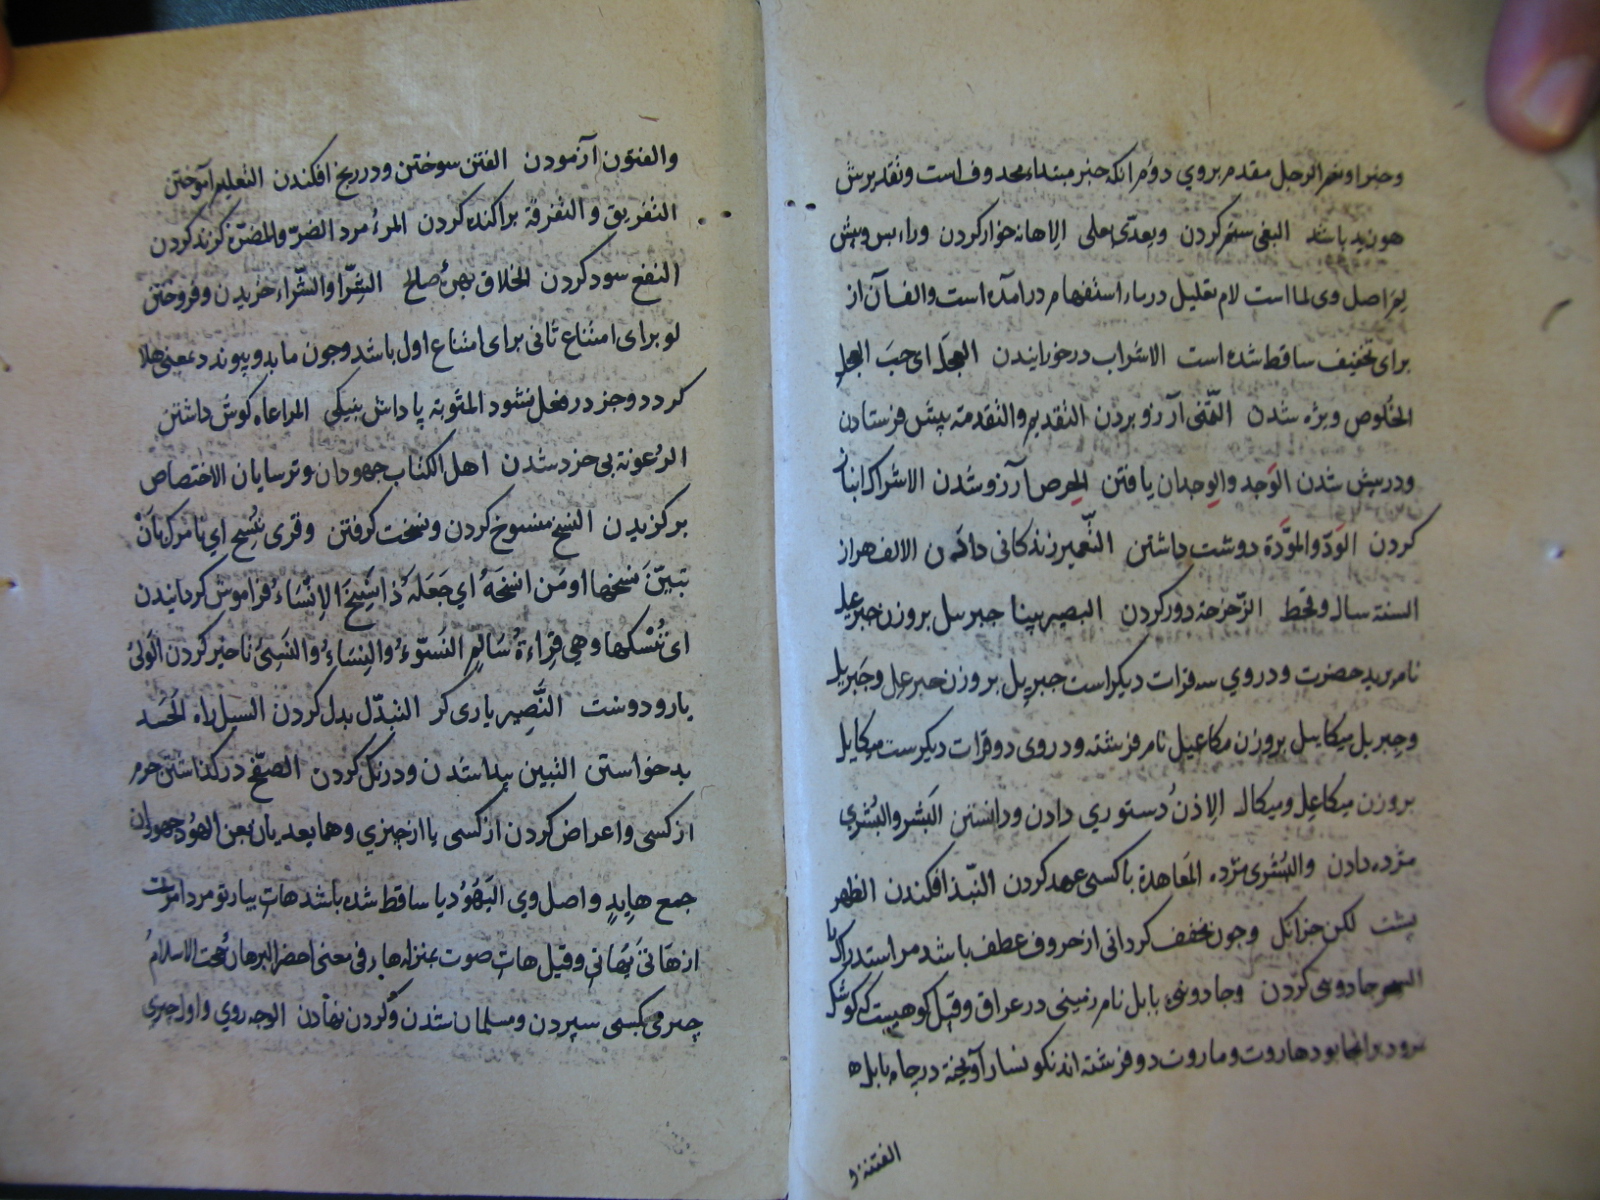 وخبر او نعم الرجل مقدم بروي دوم انكه خبر مبتداء محذوف است وتقديرش
هو زيد باشد البغى ستم كردن ويعدّى بعلى الاهانه خوار كردن وراء پس وپيش
لم اصل وى لما است لام تعليل در ماء استفهام در آمده است والف آن از
براى تخفيف ساقط شده است الاشراب در خورانيدن العجل اى حب العجل
الخلوص ويژه شدن التمّنى آرزو بردن التقديم والتقدمة پيش فرستادن
ودرپيش شدن الوَجد والوِجدان يافتن الحِرص آرزو شدن الاشراك انباز
كردن الوَدّ والمَوَدّة دوست داشتن التّعمير زندكانى دادن الالف هزار
السنة سال وقحط الزّحزحة دور كردن البصير بينا جبرئيل بر وزن جبرعيل
نام بريد حضرت ودر وي سه قرات ديكر است جبرئل بر وزن جبرعل وجَبريل
وجِبريل ميكاييل بر وزن مكاعيل نام فرشته ودر وى دو قرات ديكرست ميكائل
بر وزن ميكاعل وميكال الاِذنُ دستوري دادن ودانستن البَشر والبُشرى
مژده دادن والبُشرى مژده المُعاهدة با كسى عهد كردن النَبذ افكندن الظهر
پشت لكن جز انكل وچون مخفف كردانى از حروف عطف باشد مر استدراك را
السحر جادوى كردن وجادوى بابل نام زمينى در عراق وقيل كوهيست كه كوشك
نمرود بر انجا بود هاروت وماروت دو فرشته اند نكونسار آويخته در چاه بابل
الفتنة و
والفتون آزمودن الفتن سوختن ودر رنج افكندن التعليم آموختن
التفريق والتفرقة پراكنده كردن المرءُ مرد الضرّ والمضرّة كزند كردن
النفع سود كردن الخلاق بهرهٔ صالح الشِّرا والشّراء خريدن وفروختن
لو براى امتناع ثانى براى امتناع اول باشد وچون ما بدو پيوندد بمعنى هلا
كردد وجز در فعل نشود المثوبة پاداش بنيكى المراعاة كوش داشتن
الرُعونة بى خرد شدن اهل الكتاب جهودان وترسايان الاختصاص
بركزيدن النسخ منسوخ كردن ونسخت كرفتن وقرى نُنسِخ اي نامرك بانْ
تبيّنَ نسخها او من انسَخَهُ اي جَعَلَهُ ذا نَسخَ الاِنْسَاءُ فراموش كردانيدن
اى نُنْسكها وهي قِراءةُ سَالمٍ النَسّوءُ والنِسَاءُ والنَسِىُ تاخير كردن الوَلىُ
يار ودوست النَّصِير يارى كر التبدّل بدل كردن السبيل راه الحَسَد
بد خواستن التبين پيدا شدن ودرنك كردن الصفح در كذاشتن جرم
از كسى واعراض كردن از كسى يا از چيزي وهما يعديان بعن الهُود جهودان
جمع هايِدٍ واصل وي اليَهُودُ يا ساقط شده باشد هات بيار تو مردا مرست
از هَاتىَ يُهاتىِ وقيل هات صوت بمنزله ها فى معنى احضر البرهان حُجت الاسلامُ
چيزى بكسى سپردن ومسلمان شدن وكردن نهادن الوجه روي واول چيزى